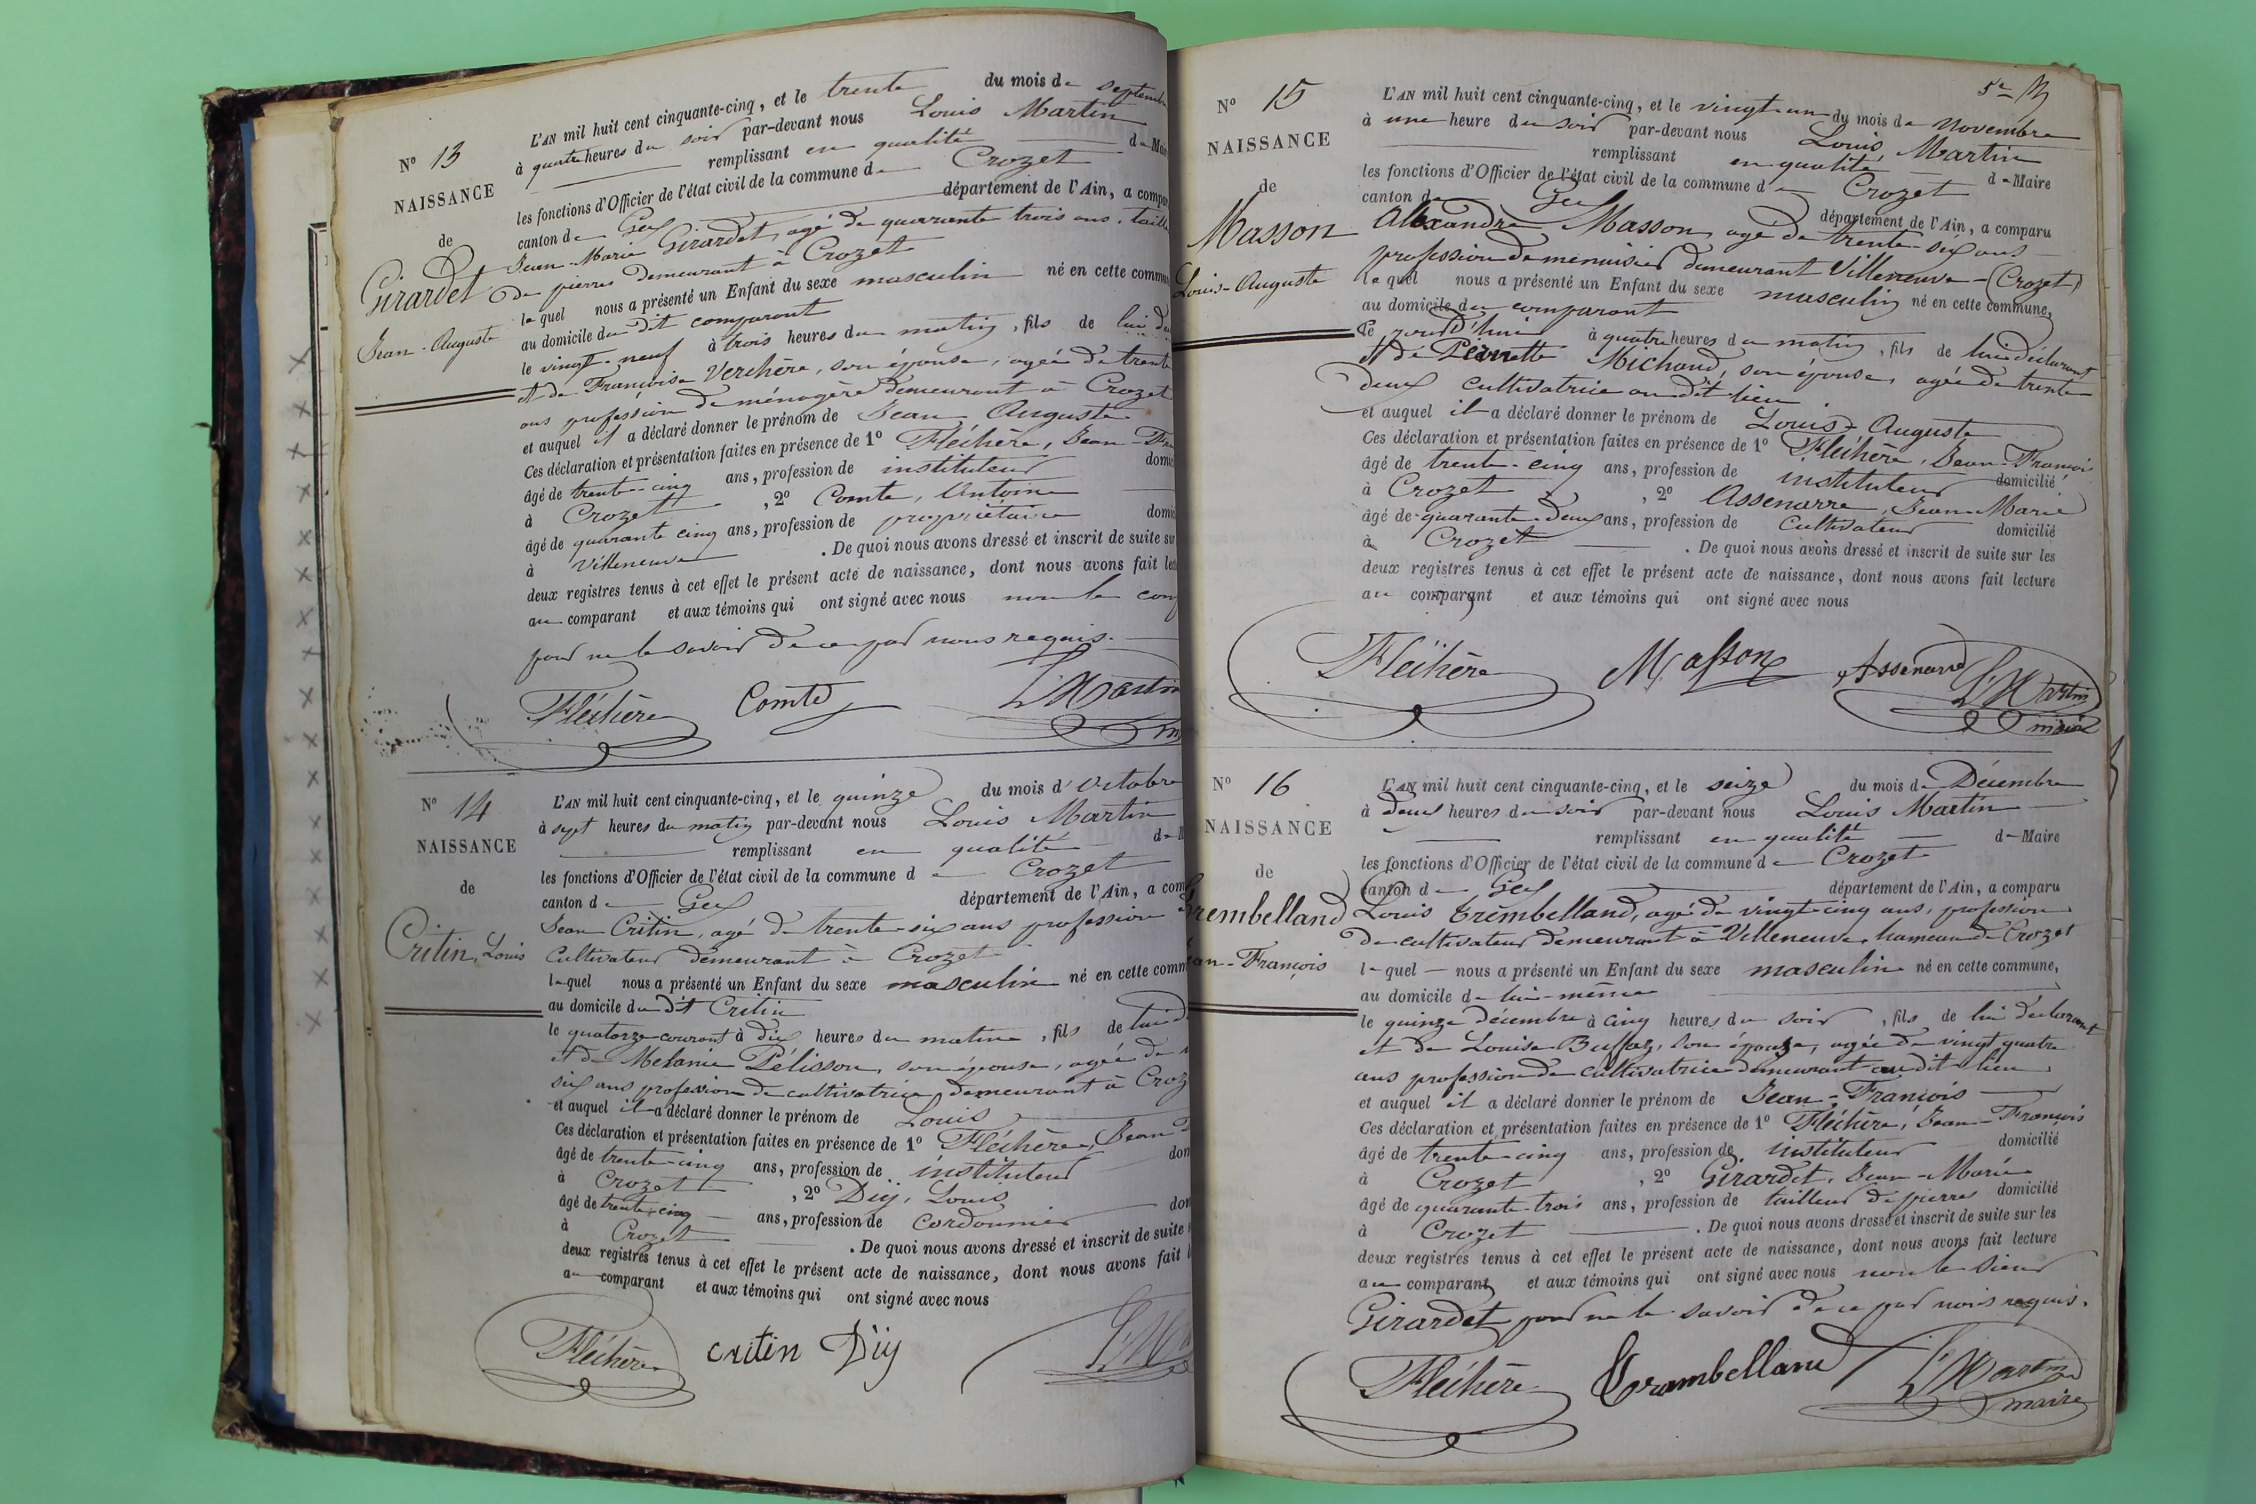 N° 13
NAISSANCE
de
Girardet
Jean-Auguste
L'AN mil huit cent cinquante-cinq, et le trente du mois de septembre
à quatre heures du soir par-devant nous Louis Martin
remplissant en qualité de Mai
les fonctions d'Officier de l'état civil de la commune de Crozet
canton de Gex département de l'Ain, a compar
Jean-Marie Girardet, agé de quarante trois ans, taille
de pierres demeurant à Crozet
lequel nous a présenté un Enfant du sexe masculin né en cette commun
au domicile du dit comparant
le vingt-neuf à trois heures du matin, fils de lui
et de Françoise Verchère, son épouse, agée de trente
ans profession de ménagère demeurant à Crozet
et auquel il a déclaré donner le prénom de Jean Auguste
Ces déclaration et présentation faites en présence de 1° Fléchère, Jean-Fra
âgé de trente-cinq ans, profession de instituteur domi
à Crozet, 2° Comte, Antoine
âgé de quarante cinq ans, profession de propriétaire domi
à Villeneuve. De quoi nous avons dressé et inscrit de suite sur
deux registres tenus à cet effet le présent acte de naissance, dont nous avons fait lec
au comparant et aux témoins qui ont signé avec nous non le com
pour ne le savoir de ce par nous requis.
Fléchère Comte L's Martin
N° 14
NAISSANCE
de
Critin, Louis
L'AN mil huit cent cinquante-cinq, et le quinze du mois d'Octobre
à sept heures du matin par-devant nous Louis Martin
remplissant en qualité de M
les fonctions d'Officier de l'état civil de la commune de Crozet
canton de Gex département de l'Ain, a com
Jean Critin, agé de trente-six ans profession
Cultivateur demeurant à Crozet
lequel nous a présenté un Enfant du sexe masculin né en cette comm
au domicile du dit Critin
le quatorze courant à dix heures du matin, fils de lui d
et de Melanie Pélisson, son épouse, agée de
six ans profession de cultivatrice, demeurant à Croz
et auquel il a déclaré donner le prénom de Louis
Ces déclaration et présentation faites en présence de 1° Fléchère, Jean
âgé de trente-cinq ans, profession de instituteur dom
à Crozet, 2° Diij, Louis
âgé de trente-cinq ans, profession de cordonnier dom
à Crozet. De quoi nous avons dressé et inscrit de suite
deux registres tenus à cet effet le présent acte de naissance, dont nous avons fait
au comparant et aux témoins qui ont signé avec nous
Fléchère critin Diij L's Ma
5e
N° 15
NAISSANCE
de
Masson
Louis-Auguste
L'AN mil huit cent cinquante-cinq, et le vingt-un du mois de Novembre
à une heure du soir par-devant nous Louis Martin
remplissant en qualité de Maire
les fonctions d'Officier de l'état civil de la commune de Crozet
canton de Gex département de l'Ain, a comparu
Alexandre Masson, agé de trente-six ans
profession de menuisier demeurant Villeneuve-(Crozet)
lequel nous a présenté un Enfant du sexe masculin né en cette commune,
au domicile du comparant
ce jourd'hui à quatre heures du matin, fils de lui déclarant
et de Pernette Michaud, son épouse, agée de trente
deux cultivatrice au dit lieu
et auquel il a déclaré donner le prénom de Louis-Auguste
Ces déclaration et présentation faites en présence de 1° Fléchère, Jean-François
âgé de trente-cinq ans, profession de instituteur domicilié
à Crozet, 2° Assenarre, Jean-Marie
âgé de quarante-deux ans, profession de Cultivateur domicilié
à Crozet. De quoi nous avons dressé et inscrit de suite sur les
deux registres tenus à cet effet le présent acte de naissance, dont nous avons fait lecture
au comparant et aux témoins qui ont signé avec nous
Fléchère Masson Assenarre L's Martin
maire
N° 16
NAISSANCE
de
Trembelland
ean-François
L'AN mil huit cent cinquante-cinq, et le seize du mois de Décembre
à deux heures du soir par-devant nous Louis Martin
remplissant en qualité de Maire
les fonctions d'Officier de l'état civil de la commune de Crozet
canton de Gex département de l'Ain, a comparu
Louis Trembelland, agé de vingt-cinq ans, profession
de cultivateur demeurant à Villeneuve, hameau de Crozet
lequel nous a présenté un Enfant du sexe masculin né en cette commune,
au domicile de lui-même
le quinze décembre à cinq heures du soir, fils de lui déclarant
et de Louise Buffaz, son épouse, agée de vingt quatre
ans profession de cultivatrice demeurant au dit lieu
et auquel il a déclaré donner le prénom de Jean-François
Ces déclaration et présentation faites en présence de 1° Fléchère, Jean-François
âgé de trente-cinq ans, profession de instituteur domicilié
à Crozet, 2° Girardet, Jean-Marie
âgé de quarante-trois ans, profession de tailleur de pierres domicilié
à Crozet. De quoi nous avons dressé et inscrit de suite sur les
deux registres tenus à cet effet le présent acte de naissance, dont nous avons fait lecture
au comparant et aux témoins qui ont signé avec nous non le sieur
Girardet pour ne le savoir de ce par nous requis.
Fléchère Trambelland L's Martin
maire